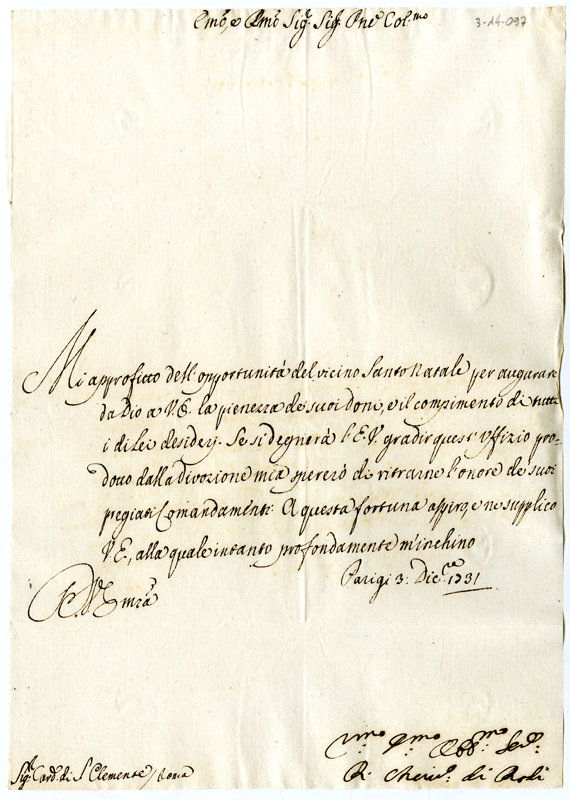 Emo, e Rmo Sig.r Sig.r Pne Col.mo
3-14-097
Mi approfitto dell'opportunità del vicino Santo Natale per augurare
da Dio a V.E. la pienezza de suoi doni, e il compimento di tutti
i di Lei desiderj. Se si degnerà l'E.V. gradir quest'Uffizio pro-
dotto dalla divozione mia spererò di ritrarne l'onore de suoi
pregiati Comandamenti. A questa fortuna aspiro, e ne supplico
V.E., alla quale intanto profondamente m'inchino
Parigi 3: Dic.re 1731
D. V. Emza
mo mo mo Ser.
di
Sig.r Card. di S. Clemente / Roma